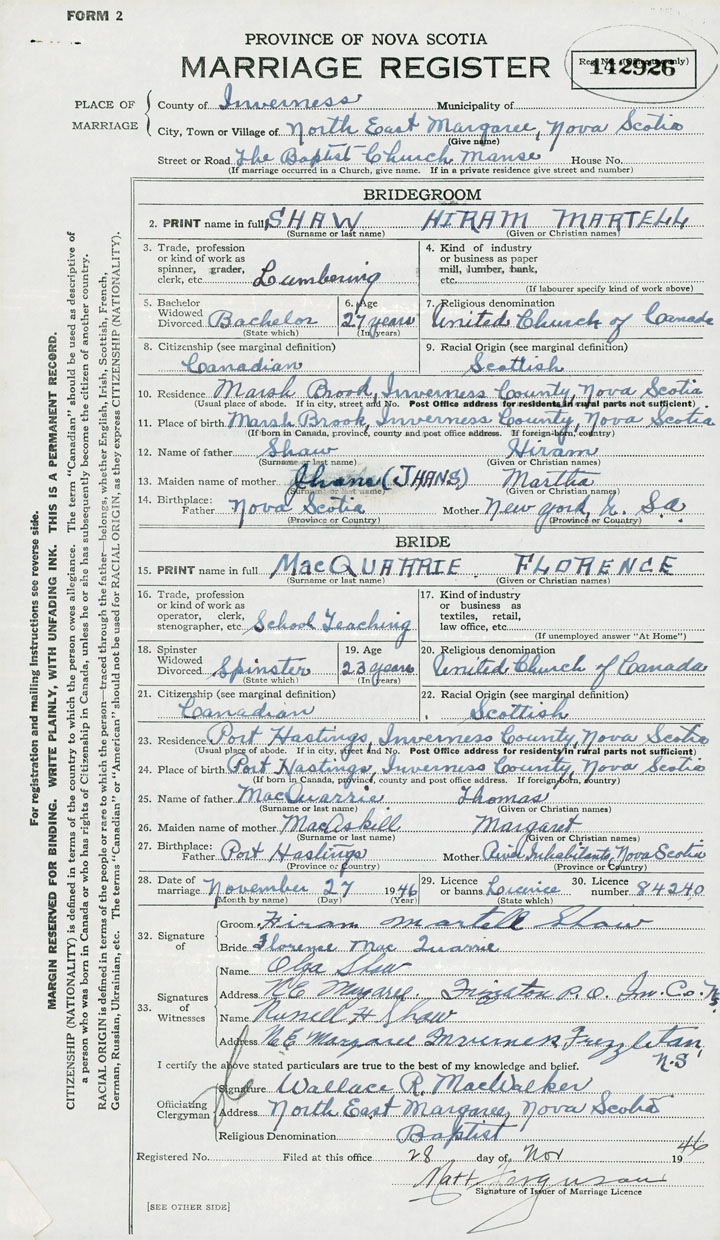 FORM 2
PROVINCE OF NOVA SCOTIA
MARRIAGE REGISTER
Reg. No. (Office use only)
142926
PLACE OF MARRIAGE
County of Inverness Municipality of
City, Town or Village of North East Margaree, Nova Scotia
(Give name)
Street or Road The Baptist Church Manse House No.
(If marriage occurred in a Church, give name. If in a private residence give street and number)
BRIDEGROOM
2. PRINT name in full SHAW HIRAM MARTELL
(Surname or last name) (Given or Christian names)
3. Trade, profession or kind of work as spinner, grader, clerk, etc. Lumbering
4. Kind of industry or business as paper mill, lumber, bank, etc.
(If labourer specify kind of work above)
5. Bachelor Widowed Divorced Bachelor
(State which)
6. Age 27 years
(In years)
7. Religious denomination
United Church of Canada
8. Citizenship (see marginal definition)
Canadian
9. Racial Origin (see marginal definition)
Scottish
10. Residence Marsh Brook, Inverness County, Nova Scotia
(Usual place of abode. If in city, street and No. Post Office address for residents in rural parts not sufficient)
11. Place of birth Marsh Brook, Inverness County, Nova Scotia
(If born in Canada, province, county and post office address. If foreign-born, country)
12. Name of father Shaw Hiram
(Surname or last name) (Given or Christian names)
13. Maiden name of mother (JHANS) Martha
(Surname or last name) (Given or Christian names)
14. Birthplace: Father Nova Scotia Mother
(Province or Country) (Province or Country)
BRIDE
15. PRINT name in full MacQUARRIE FLORENCE
(Surname or last name) (Given or Christian names)
16. Trade, profession or kind of work as operator, clerk, stenographer, etc. School Teaching
17. Kind of industry or business as textiles, retail, law office, etc.
(If unemployed answer "At Home")
18. Spinster Widowed Divorced Spinster
(State which)
19. Age 23 years
(In years)
20. Religious denomination
United Church of Canada
21. Citizenship (see marginal definition)
Canadian
22. Racial Origin (see marginal definition)
Scottish
23. Residence Port Hastings, Inverness County, Nova Scotia
(Usual place of abode. If in city, street and No. Post Office address for residents in rural parts not sufficient)
24. Place of birth Port Hastings, Inverness County, Nova Scotia
(If born in Canada, province, county and post office address. If foreign-born, country)
25. Name of father MacQuarrie Thomas
(Surname or last name) (Given or Christian names)
26. Maiden name of mother MacAskill Margaret
(Surname or last name) (Given or Christian names)
27. Birthplace: Father Port Hastings Mother Inhabitants, Nova Scotia
(Province or Country) (Province or Country)
28. Date of marriage November 27 1946
(Month by name) (Day) (Year)
29. Licence or banns Licence
(State which)
30. Licence number 84240
32. Signature of
Groom Hiram Martell Shaw
Bride Florence Mac Quarrie
33. Signatures of Witnesses
Name Olga Shaw
Address N E Margaree, P.O. Inv. Co. N.S
Name Russell H Shaw
Address N E Margaree Inverness Frizzleton, N.S
I certify the above stated particulars are true to the best of my knowledge and belief.
Officiating Clergyman
Signature Wallace R. MacWalker
Address North East Margaree, Nova Scotia
Religious Denomination Baptist
Registered No. Filed at this office 28 day of Nov 1946
Matt Ferguson
Signature of Issuer of Marriage Licence
[SEE OTHER SIDE]
For registration and mailing Instructions see reverse side.
MARGIN RESERVED FOR BINDING. WRITE PLAINLY, WITH UNFADING INK. THIS IS A PERMANENT RECORD.
CITIZENSHIP (NATIONALITY) is defined in terms of the country to which the person owes allegiance. The term "Canadian" should be used as descriptive of
a person who was born in Canada or who has rights of Citizenship in Canada, unless he or she has subsequently become the citizen of another country.
RACIAL ORIGIN is defined in terms of the people or race to which the person—traced through the father—belongs, whether English, Irish, Scottish, French,
German, Russian, Ukrainian, etc. The terms "Canadian" or "American" should not be used for RACIAL ORIGIN, as they express CITIZENSHIP (NATIONALITY).